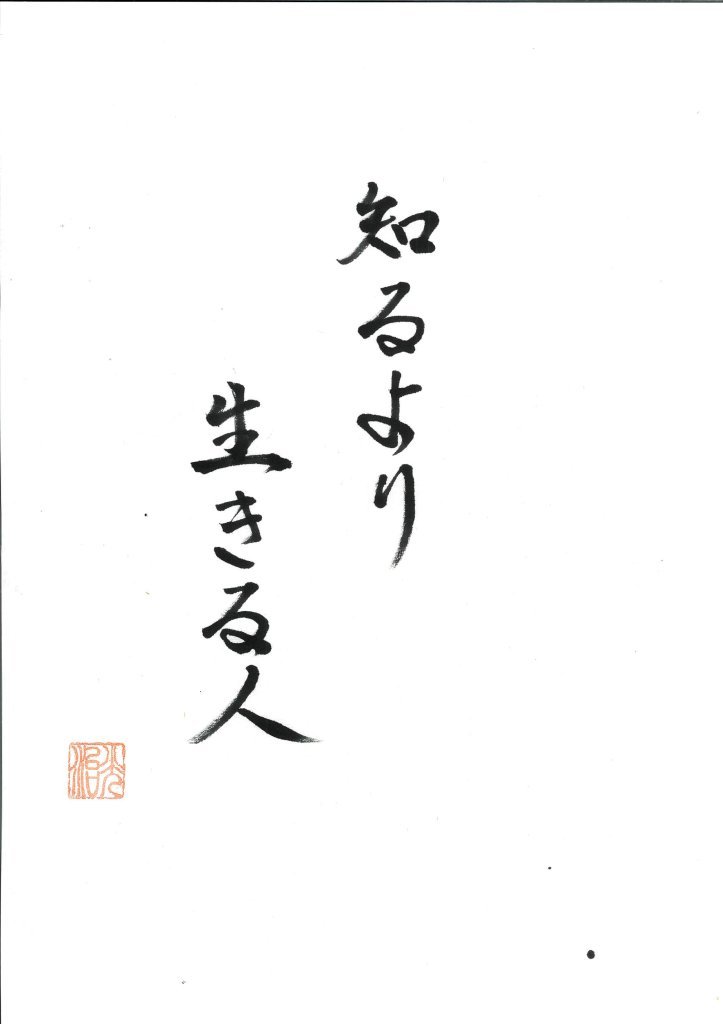 知るより
生きる人